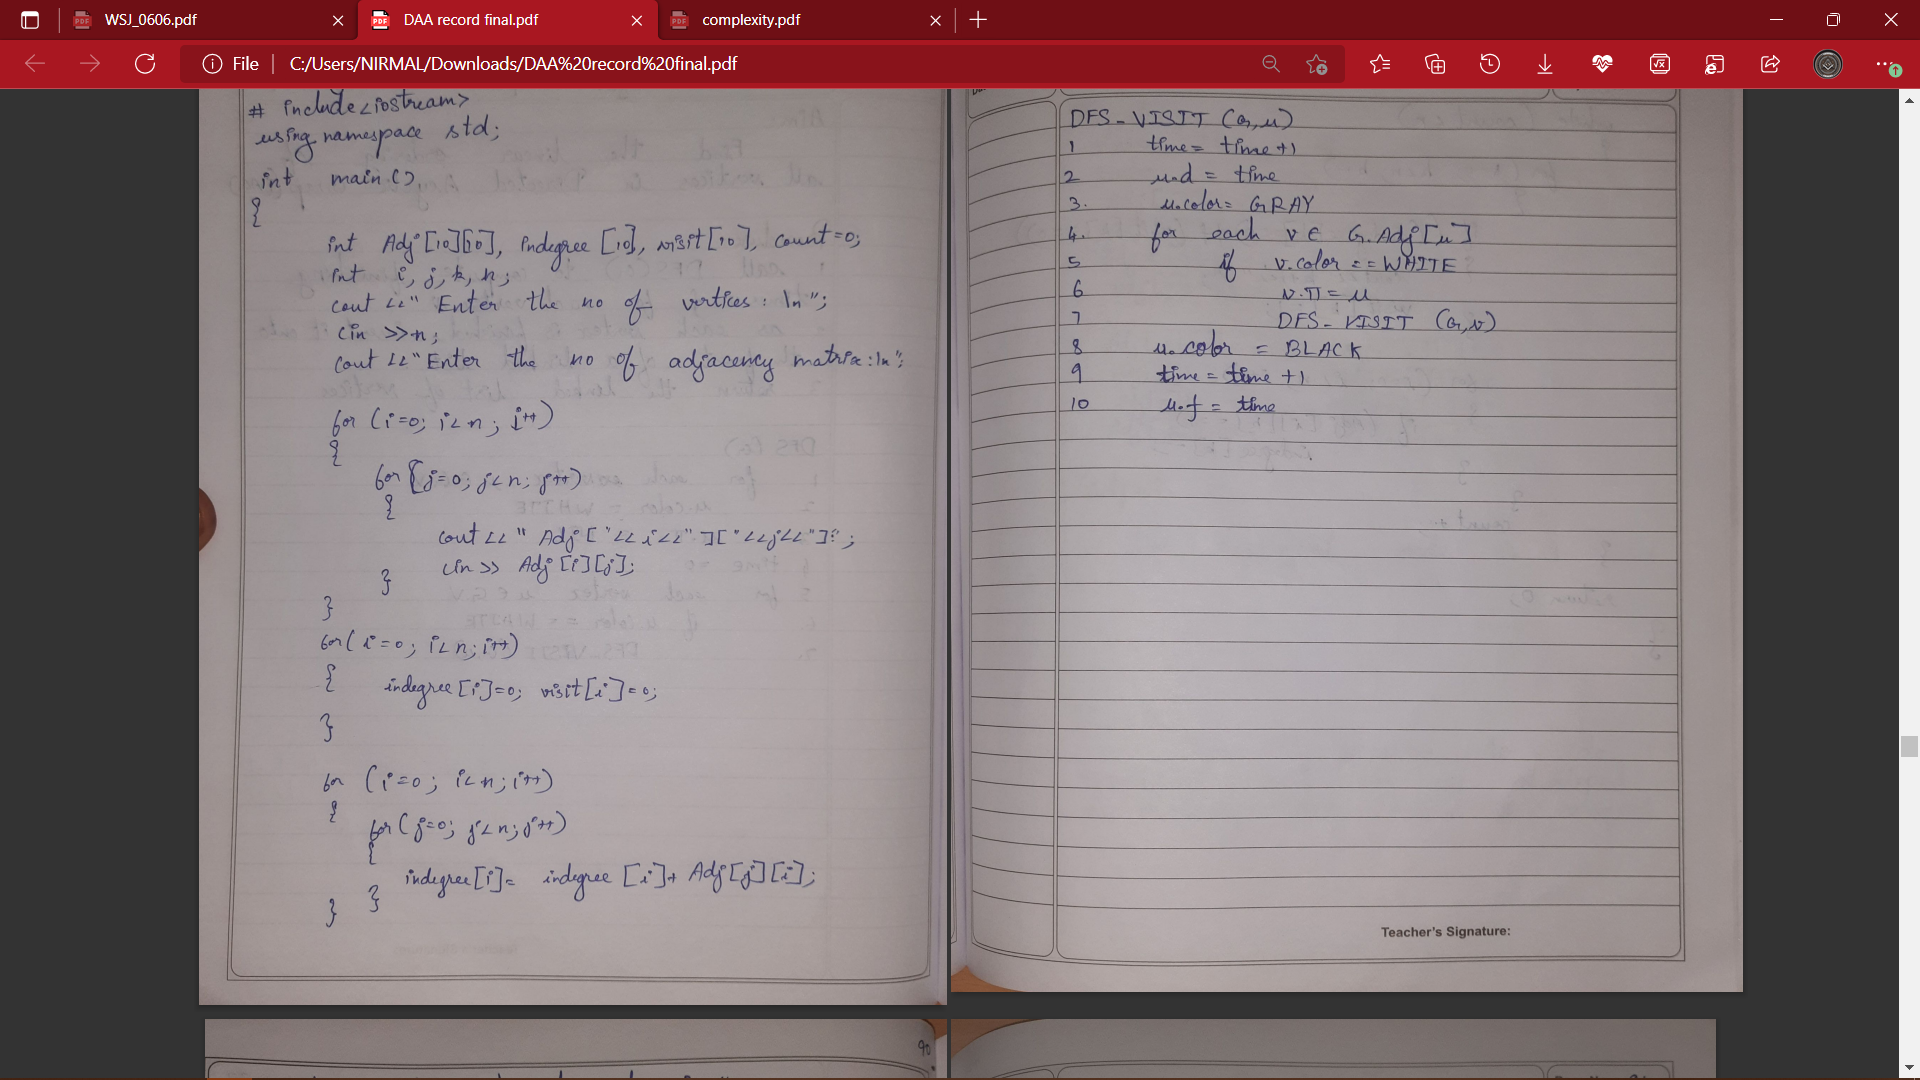 WSJ_0606.pdf
DAA record final.pdf
complexity.pdf
File
C:/Users/NIRMAL/Downloads/DAA%20record%20final.pdf
# include<iostream>
using namespace std;
int main()
{
int Adj[10][10], indegree[10], visit[10], count=0;
int i, j, k, n;
cout <<" Enter the no of vertices : \n";
cin >>n;
cout <<"Enter the no of adjacency matrix:\n";
for (i=0; i<n; i++)
{
for (j=0; j<n; j++)
{
cout <<" Adj["<<i<<"]["<<j<<"]:";
cin >> Adj[i][j];
}
}
for(i=0; i<n; i++)
{
indegree[i]=0; visit[i]=0;
}
for (i=0; i<n; i++)
{
for(j=0; j<n; j++)
{
indegree[i]= indegree[i]+ Adj[j][i];
}
}
DFS-VISIT (G,u)
1 time= time+1
2 u.d = time
3. u.color= GRAY
4. for each v ∈ G.Adj[u]
5 if v.color == WHITE
6 v.π = u
7 DFS-VISIT (G,v)
8 u.color = BLACK
9 time = time +1
10 u.f = time
Teacher's Signature:
90